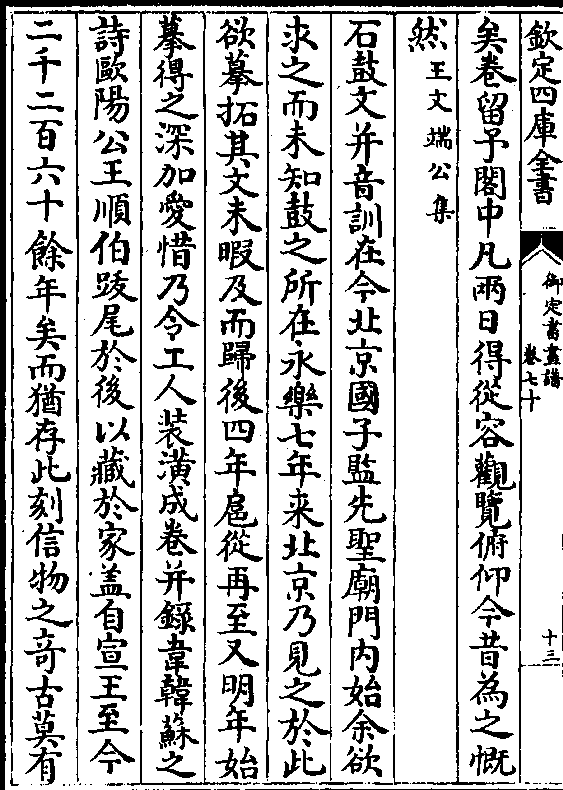 欽定四庫全書
御定書畫譜
卷七十
十三
矣卷留予閣中凡兩日得從容觀覽俯仰今昔為之慨
然王文端公集
石鼓文并音訓在今北京國子監先聖廟門内始余欲
求之而未知鼓之所在永樂七年来北京乃見之於此
欲摹拓其文未暇及而歸後四年扈從再至又明年始
摹得之深加愛惜乃令工人装潢成卷并録韋韓蘇之
詩歐陽公王順伯跋尾於後以藏於家盖自宣王至今
二千二百六十餘年矣而猶存此刻信物之竒古莫有